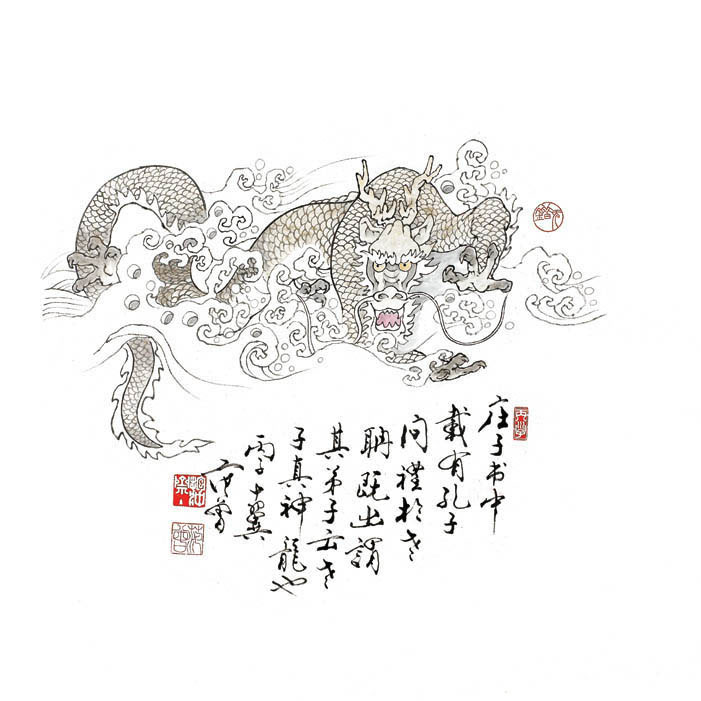 庄子书中
載有孔子
问禮於老
聃既出謂
其弟子云老
子真神龍也
丙子十翼
范曾